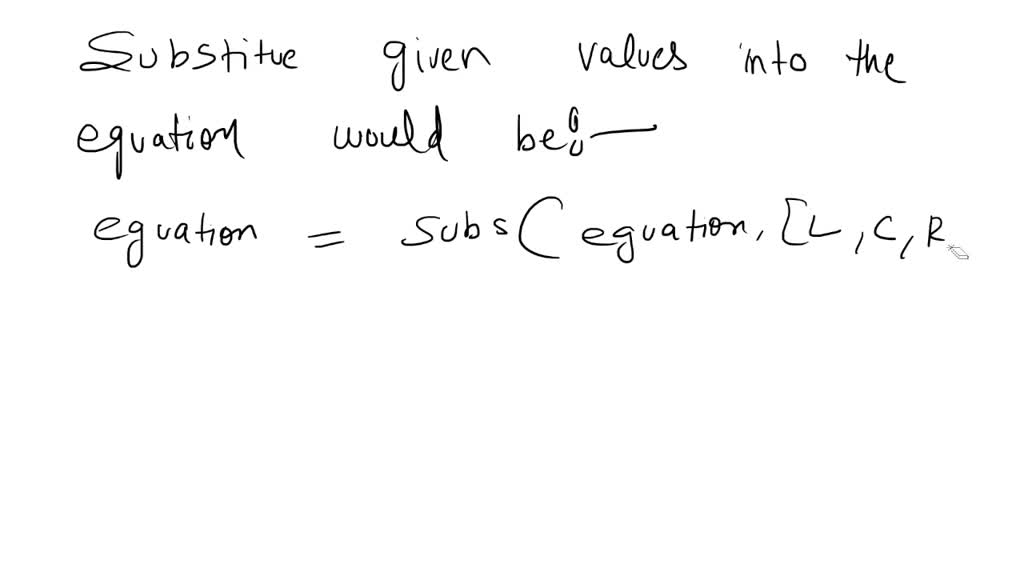 Substitue given values into the
equation would be:—
equation = subs( equation, [L, C, R